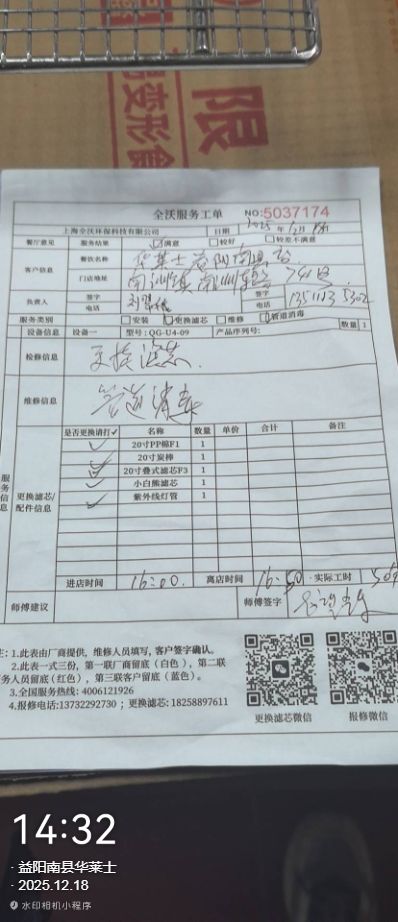 限
易变形食
全沃服务工单 NO:5037174
上海全沃环保科技有限公司 日期 2025年12月18
餐厅意见 服务结果 满意 较好 较差不满意
客户信息 餐饮名称 华莱士益阳南县店
门店地址 南洲镇南洲东路74号
负责人 签字 签字
电话 电话
服务类别 安装 更换滤芯 维修 管道消毒
设备信息 设备一 型号:QG-U4-09 产品序列号: 数量 1
检修信息 更换滤芯.
维修信息 管道消毒
服务信息
更换滤芯/配件信息
是否更换请打✓ 名称 数量 单价 合计 备注
✓ 20寸PP棉F1 1
✓ 20寸炭棒 1
✓ 20寸叠式滤芯F3 1
✓ 小白熊滤芯 1
✓ 紫外线灯管 1
进店时间 16:00. 离店时间 16:50 实际工时
师傅建议 师傅签字
注:1.此表由厂商提供,维修人员填写,客户签字确认。
2.此表一式三份,第一联厂商留底(白色),第二联
务人员留底(红色),第三联客户留底(蓝色)。
3.全国服务热线: 4006121926
4.报修电话:13732292730;更换滤芯:18258897611
更换滤芯微信 报修微信
14:32
·益阳南县华莱士
·2025.12.18
水印相机小程序